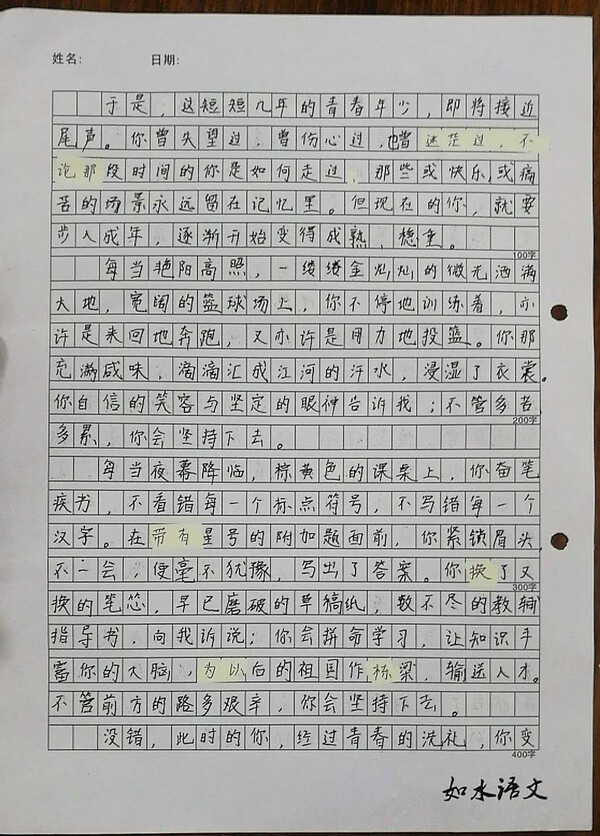 姓名: 日期:
于是，这短短几年的青春年少，即将接近
尾声。你曾失望过，曾伤心过，也曾迷茫过，不
论那段时间的你是如何走过，那些或快乐或痛
苦的场景永远留在记忆里。但现在的你，就要
步入成年，逐渐开始变得成熟，稳重。
100字
每当艳阳高照，一缕缕金灿灿的微光洒满
大地，宽阔的篮球场上，你不停地训练着，亦
许是来回地奔跑，又亦许是用力地投篮。你那
充满咸味，滴滴汇成江河的汗水，浸湿了衣裳。
你自信的笑容与坚定的眼神告诉我；不管多苦
200字
多累，你会坚持下去。
每当夜幕降临，棕黄色的课桌上，你奋笔
疾书，不看错每一个标点符号，不写错每一个
汉字。在带有星号的附加题面前，你紧锁眉头，
不一会，便毫不犹豫，写出了答案。你换了又
300字
换的笔芯，早已磨破的草稿纸，数不尽的教辅
指导书，向我诉说；你会拼命学习，让知识丰
富你的大脑，为以后的祖国作栋梁，输送人才。
不管前方的路多艰辛，你会坚持下去。
没错，此时的你，经过青春的洗礼，你变
400字
如水语文